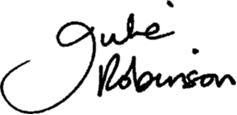 Julie
Robinson